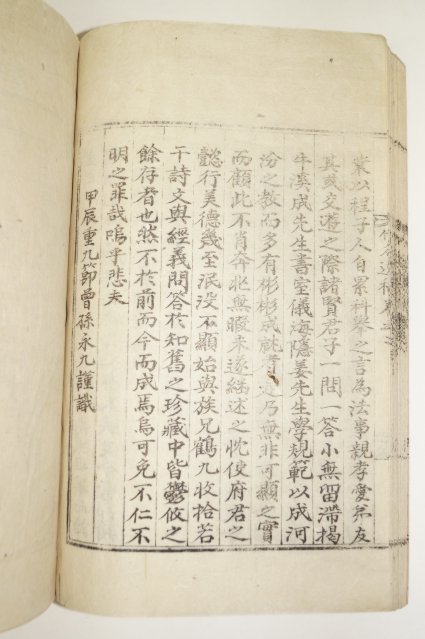 業以程子人自累科擧之言為法事親孝愛弟友
其或交遊之際諸賢君子一問一答小無留滯揭
牛溪成先生書室儀海隱姜先生學規範以成河
汾之教而多有彬彬成就者乃無非可顯之實
而顧此不肖奔北無暇未遂繼述之忱使府君之
懿行美德幾至泯没不顯始與族兄鶴九收拾若
干詩文與經義問答於知舊之珍藏中皆鬱攸之
餘存者也然不於前而今而成焉烏可免不仁不
明之罪哉嗚乎悲夫
甲辰重九節曾孫永九謹識